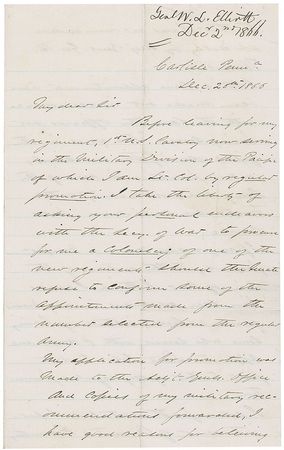 Genl W. L. Elliott
Dec 2nd 1866.
Carlisle Penna
Dec. 2nd 1866
My dear Sir
Before leaving for my
regiment, 1st U.S. Cavalry now serving
in the Military Division of the Pacific
of which I am Lt. Col. by regular
promotion. I take the liberty of
asking your personal endeavors
with the Secy. of War to procure
for me a Colonelcy of one of the
new regiments should the Senate
refuse to confirm some of the
appointments made from the
number selected from the regular
Army.
My application for promotion was
made to the Adjt. Genls. Office
and copies of my military rec-
ommendations forwarded, I
have good reasons for believing